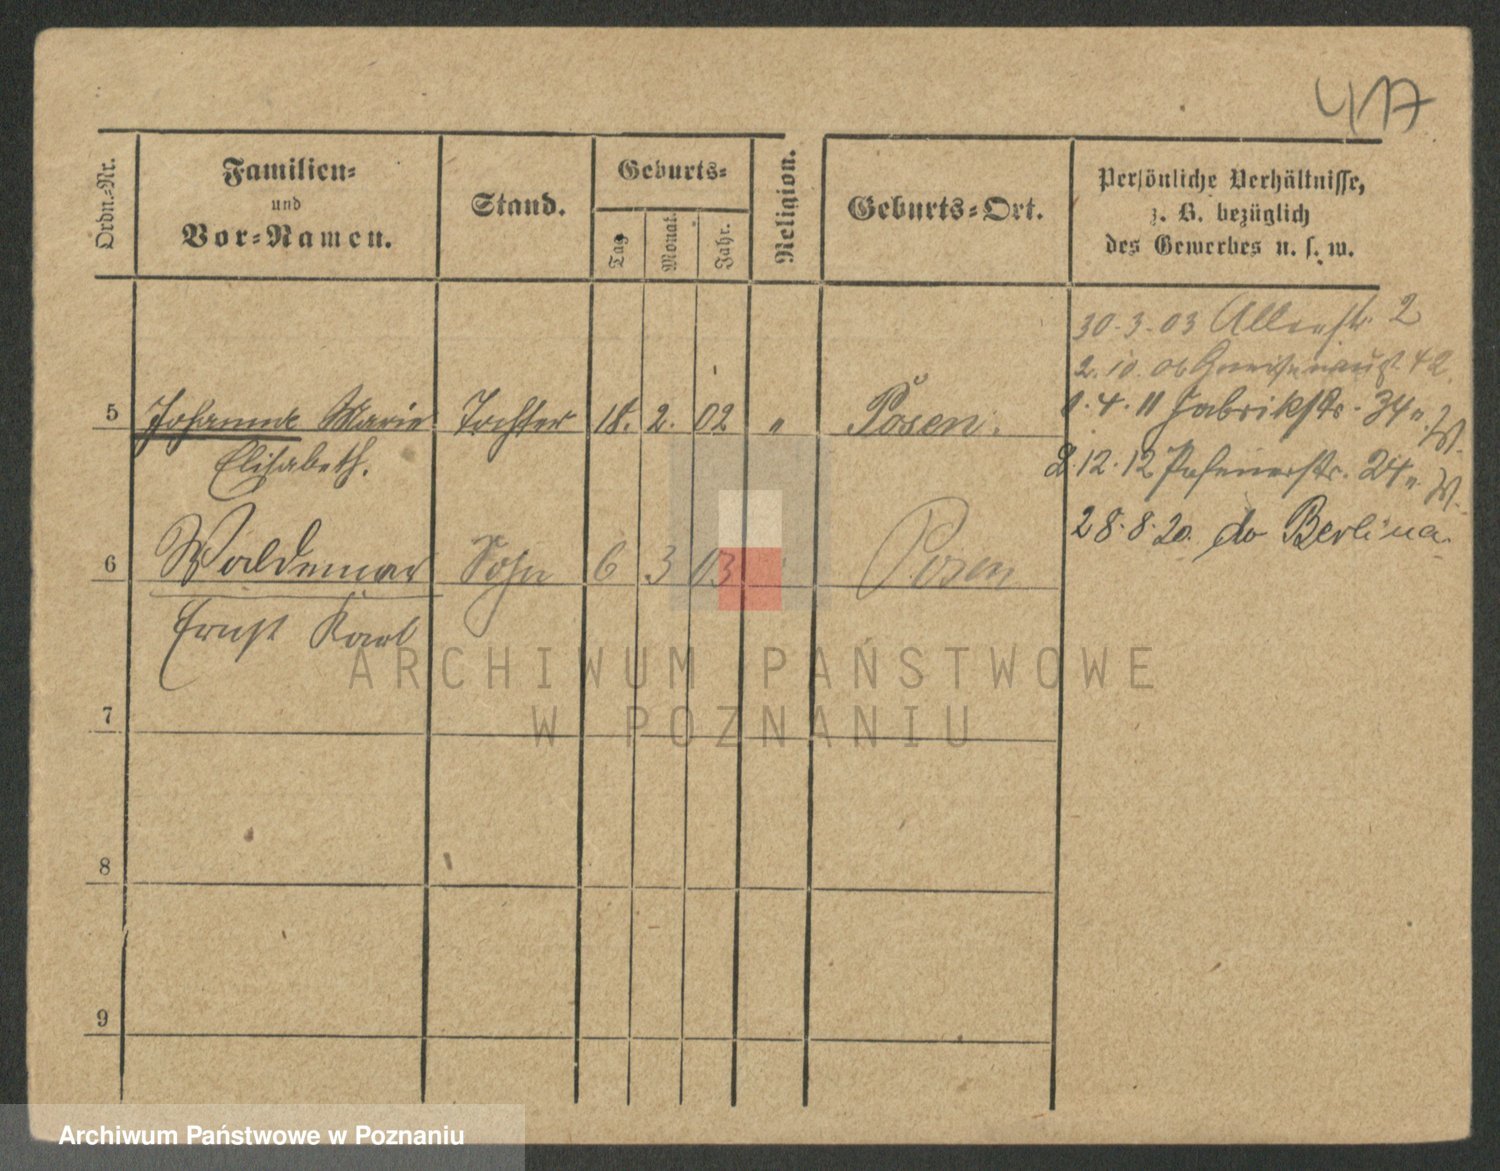 417
Ordn.-Nr.
Familien-
und
Vor-Namen.
Stand.
Geburts-
Tag
Monat.
Jahr.
Religion.
Geburts-Ort.
Persönliche Verhältnisse,
z. B. bezüglich
des Gewerbes u. s. w.
30.3.03 2
2.10.06 Gneisenaustr. 42
1.4.11 Fabrikstr. 34 W.
5 Johanna Marie Tochter 18. 2. 02 " Posen.
Elisabeth.
2.12.12 Posenerstr. 24 W.
28.8.20. do Berlina.
6 Waldemar Sohn 6 3 03 " Posen
Ernst Karl
ARCHIWUM PAŃSTWOWE
W POZNANIU
7
8
9
Archiwum Państwowe w Poznaniu